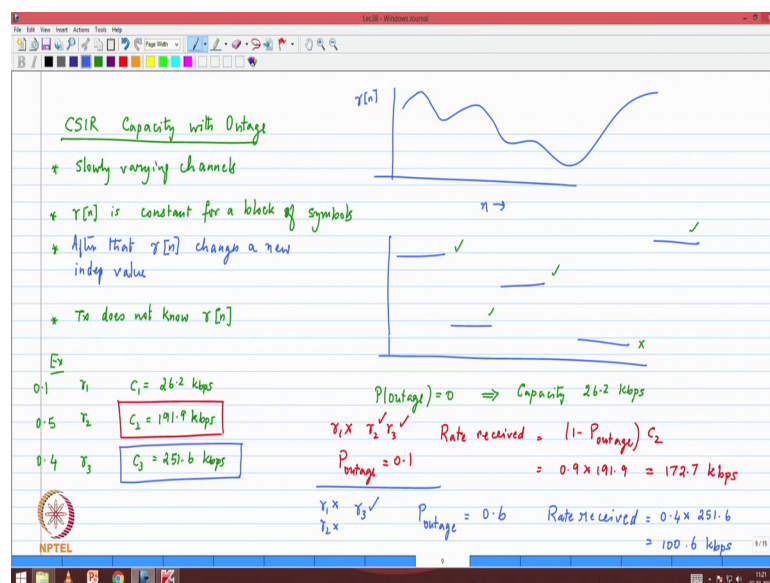 Lec38 - Windows Journal
File Edit View Insert Actions Tools Help
Page Width
B I
CSIR Capacity with Outage
* Slowly varying channels
* γ[n] is constant for a block of symbols
* After that γ[n] changes a new
indep value
* Tx does not know γ[n]
γ[n]
n →
✓ ✓ ✓ ✓ x
Ex
0.1 γ₁ C₁ = 26.2 kbps
0.5 γ₂ C₂ = 191.9 kbps
0.4 γ₃ C₃ = 251.6 kbps
P(outage) = 0 ⇒ Capacity 26.2 kbps
γ₁ x γ₂ ✓ γ₃ ✓ Rate received = (1 - Poutage) C₂
Poutage = 0.1 = 0.9 x 191.9 = 172.7 kbps
γ₁ x γ₃ ✓ Poutage = 0.6 Rate received = 0.4 x 251.6
γ₂ x = 100.6 kbps
NPTEL
9
9/15
11:21